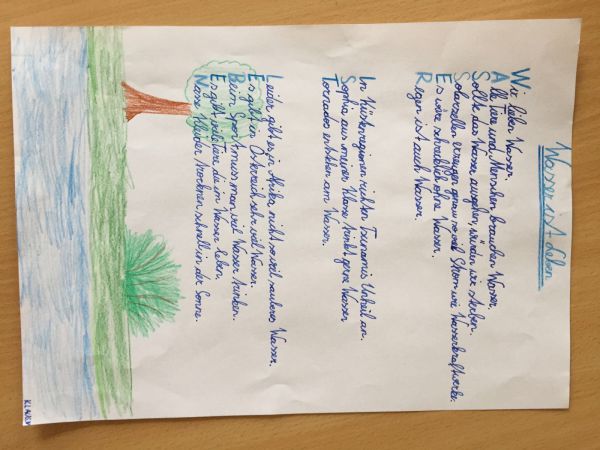 Wasser ist Leben
Wir lieben Wasser.
Alle Tiere und Menschen brauchen Wasser.
Sollte das Wasser ausgehen, würden wir sterben.
Solarzellen erzeugen genau so viel Strom wie Wasserkraftwerke.
Es wäre schrecklich ohne Wasser.
Regen ist auch Wasser.
In Küstenregionen richten Tsunamis Unheil an.
Sophia aus meiner Klasse trinkt gerne Wasser.
Tornados entstehen am Wasser.
Leider gibt es in Afrika nicht so viel sauberes Wasser.
Es gibt in Österreich sehr viel Wasser.
Beim Sport muss man viel Wasser trinken.
Es gibt viele Tiere die im Wasser leben.
Nasse Kleider trocknen schnell in der Sonne.